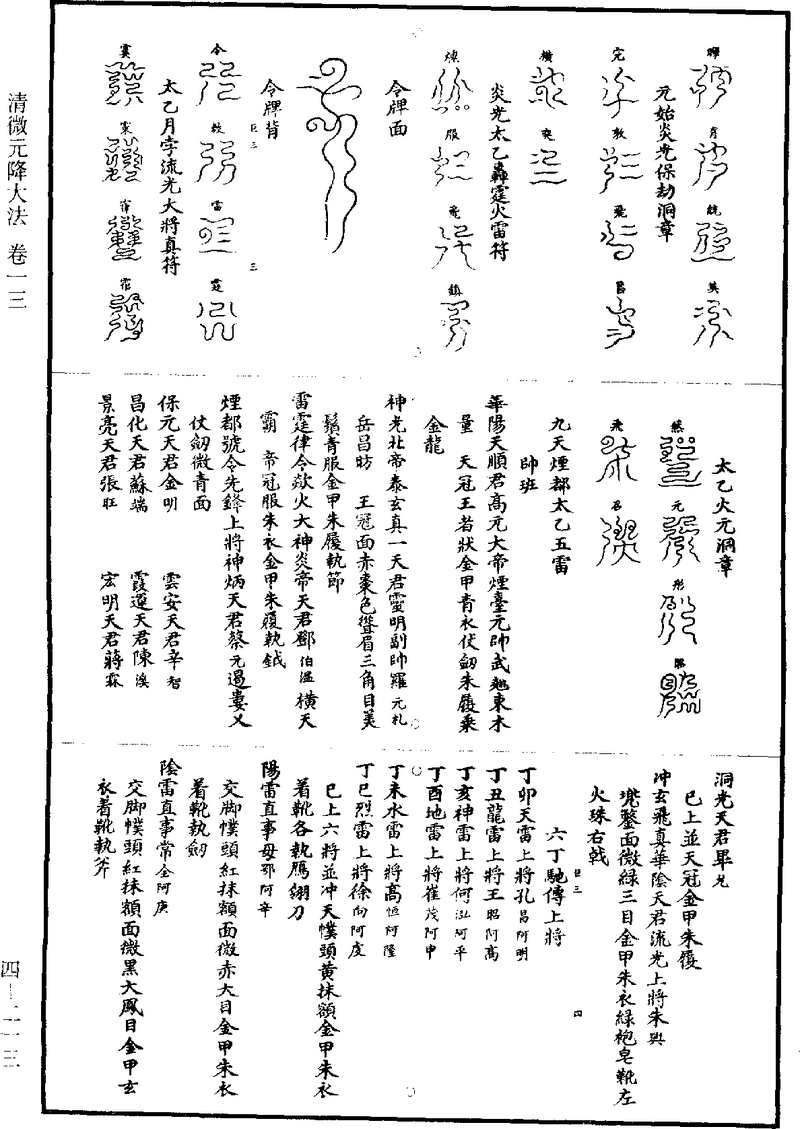 清微元降大法 卷一三
四—二一三
元始炎光保劫洞章
完 敕 飛 召
橫 奕
炎光太乙轟霆火雷符
服 飛 鎮
令牌面
令牌背
令 敕 雷 霆
巨三 三
太乙月孛流光大將真符
太乙火元洞章
元 彤
飛 召
九天煙都太乙五雷
帥班
華陽天順君高元大帝煙臺元帥武 東木
量 天冠王者狀金甲青衣仗劒朱履乘
金龍
神光北帝泰玄真一天君雷明副帥羅元札
岳昌昉 王冠面赤棗色聳眉三角目美
鬚青服金甲朱履執節
雷霆律令欻火大神炎帝天君鄧伯溫橫天
霸 帝冠服朱衣金甲朱履執鉞
煙都號令先鋒上將神炳天君蔡元過婁乂
仗劒微青面
保元天君金明 雲安天君辛智
昌化天君蘇端 霞運天君陳溪
景亮天君張旺 宏明天君蔣霖
洞光天君畢
已上並天冠金甲朱履
沖玄飛真華陰天君流光上將朱輿
兜鍪面微綠三目金甲朱衣綠袍皂靴左
火珠右戟
巨三 四
六丁馳傳上將
丁卯天雷上將孔昌阿明
丁丑龍雷上將王昭阿高
丁亥神雷上將何泓阿平
丁酉地雷上將崔茂阿申
丁未水雷上將高恒阿隆
丁巳烈雷上將徐向阿虔
已上六將並冲天幞頭黃抹額金甲朱衣
着靴各執鴈翎刀
陽雷直事毋鄂阿辛
交脚幞頭紅抹額面微赤大目金甲朱衣
着靴執劒
陰雷直事常金阿庚
交脚幞頭紅抹額面微黑大鳳目金甲玄
衣着靴執斧